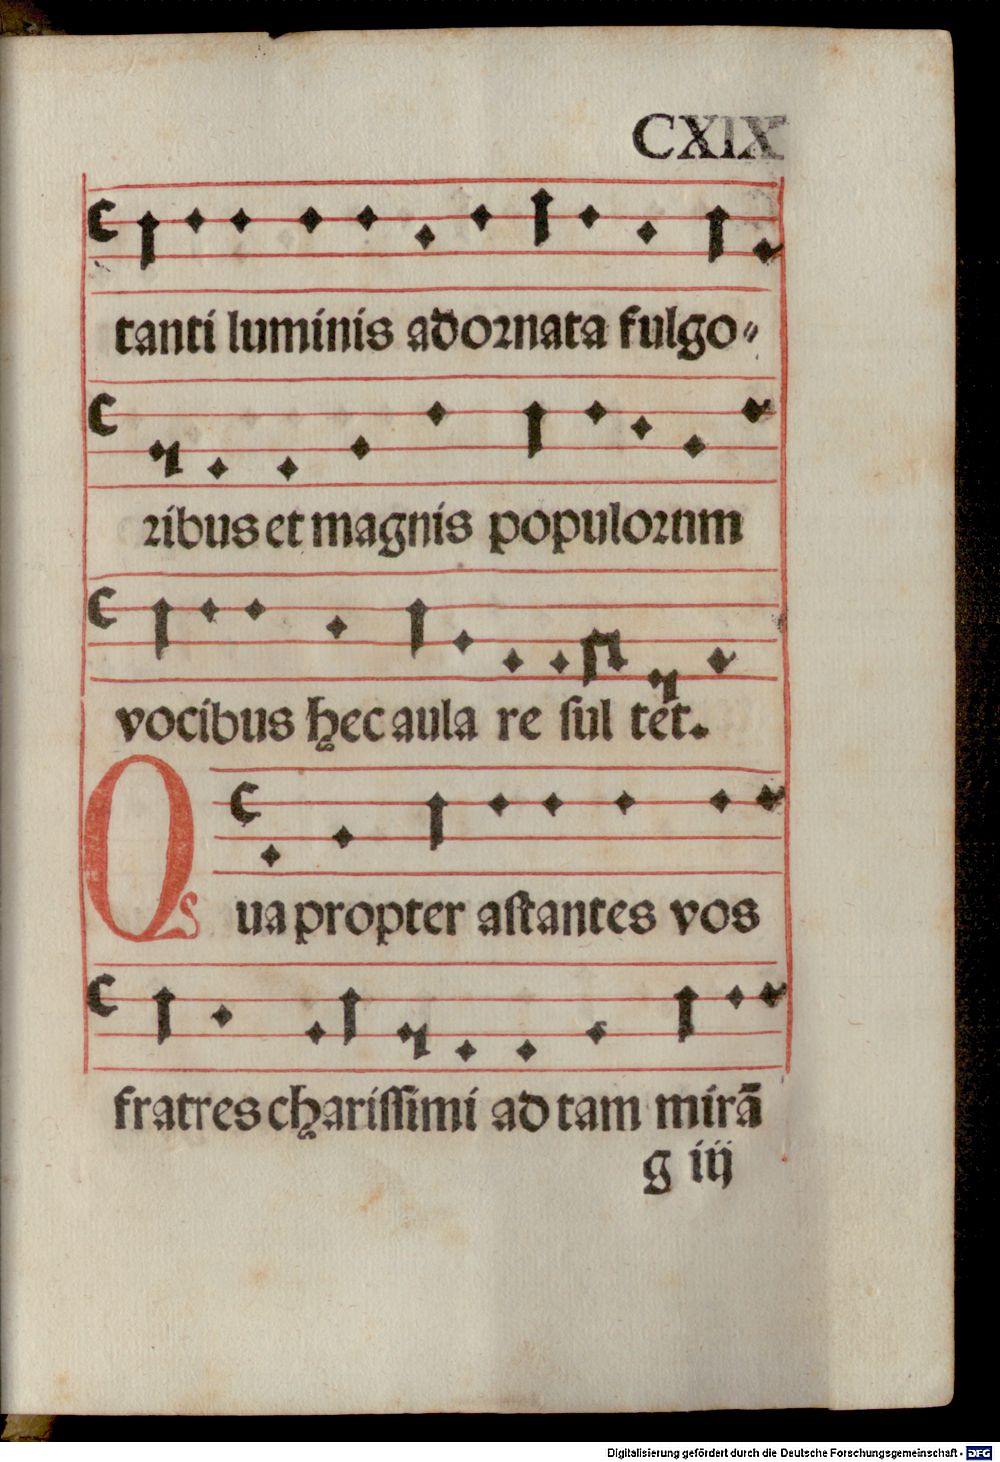 CXIX
tanti luminis adornata fulgo⸗
ribus et magnis populornm
vocibus hęc aula re ſul tet.
Qua propter aſtantes vos
fratres chariſſimi ad tam mirã
g iij
Digitalisierung gefördert durch die Deutsche Forschungsgemeinschaft - DFG